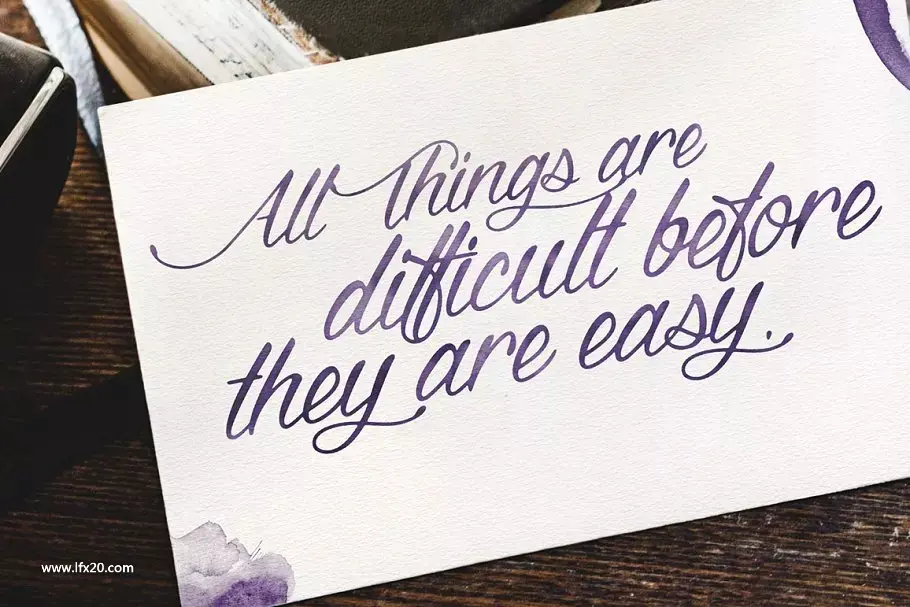 All Things are
difficult before
they are easy.
www.lfx20.com